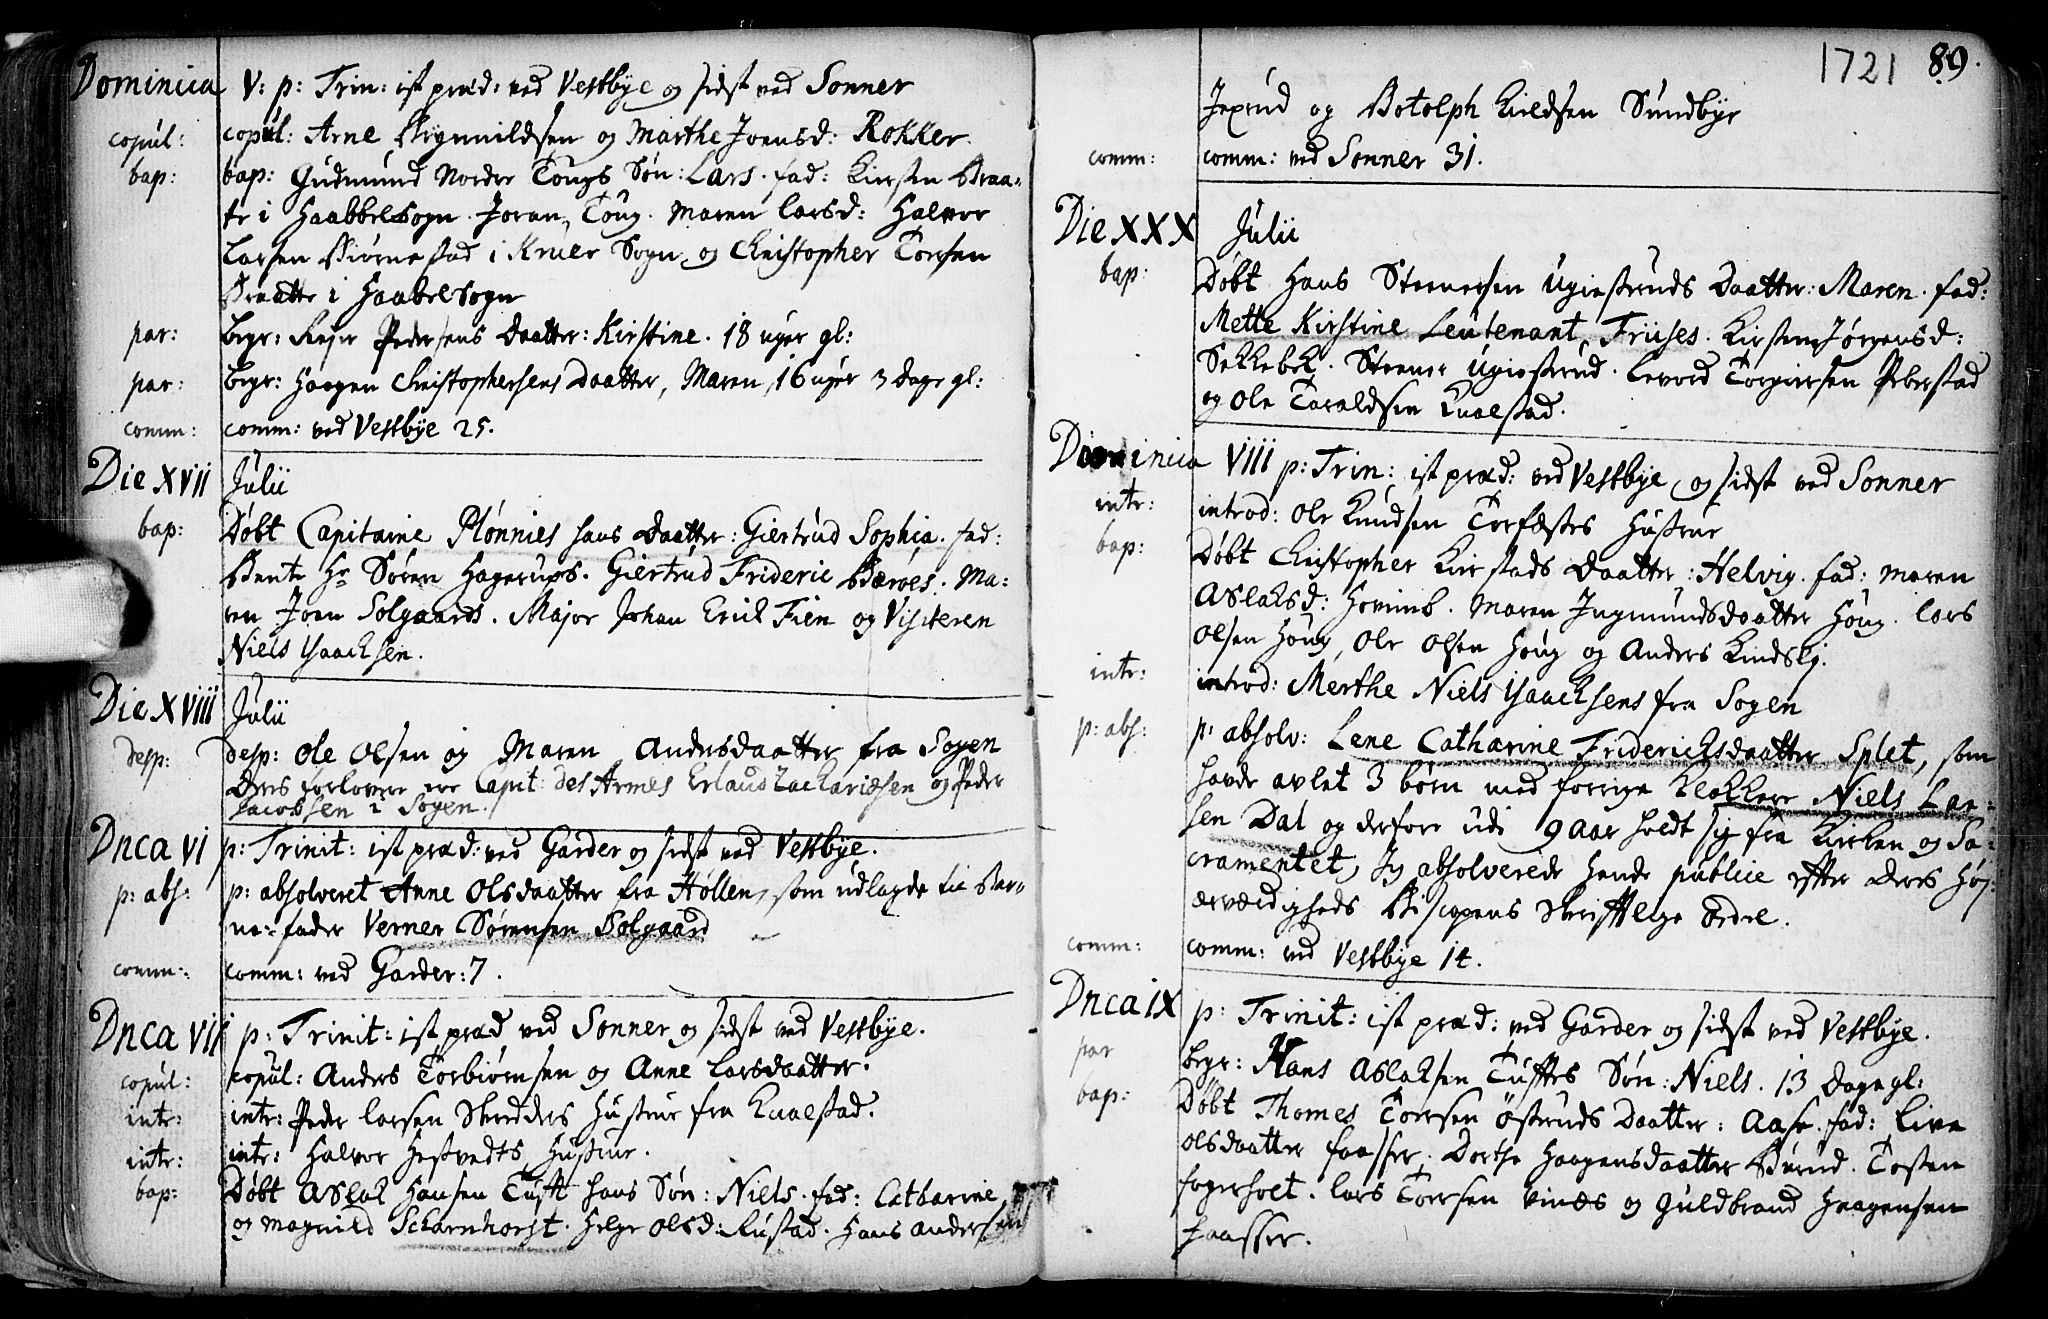 Dominica V: p: Trin: ist præd: ved Vestbye og sidst ved Sonner
copul: copul: Arne og Marthe Joensd: Rokker.
bap: bap: Gudmund Norder Tougs Søn: Lars. fad: Kirsten Braa-
te i Haabbelsogn. Joran Toug. Maren Larsd: Halvor
Larsen Biørnestad i Kruer Sogn og Christopher Torsen
Braatte i Haabelsogn
par: begr: Pedersens Daatter: Kirstine. 18 uger gl:
par: begr: Haagen Christophersens Daatter, Maren, 16 uger 3 dage gl:
comm: comm: ved Vestbye 25.
Die XVII Julii
bap: Døbt Capitaine Plønnies hans Daatter: Giertrud Sophia. fad:
Bente Hr Søren Hagerups. Giertrud Frideric Bærøes. Ma-
ren Joen Solgaards. Major Johan Erich Fien og Visiteren
Niels Isaachsen.
Die XVIII Julii
desp: desp: Ole Olsen og Maren Andersdaatter fra Sogen
Deres forlovere ere Capit: des Armes Erland Zachariæsen og Peder
Jacobsen i Sogen.
Dnca VI p: Trinit: ist præd: ved Garder og sidst ved Vestbye.
p: abs: p: absolveret Anne Olsdaatter fra Hollen, som udlagde til Bar-
ne-fader Verner Sørensen Solgaard
comm: comm: ved Garder: 7.
Dnca VII p: Trinit: ist præd ved Sonner og sidst ved Vestbye.
copul: copul: Anders Torbiørnsen og Anne Larsdaatter.
intr: intr: Peder Larsen Skredders Hustrue fra Kualstad.
intr: intr: Halvor Hestvedts Hustrue.
bap: Døbt Aslak Hansen Tuft hans Søn: Niels. fad: Catharine
og Magnild Scharnhorst. Helge Olsd: Rustad. Hans Andersen
1721 89.
Jexrud og Botolph Kieldsen Sundbye
comm: comm: ved Sonner 31.
Die XXX Julii
bap: Døbt Hans Steenersen Ugiestruds Daatter: Maren. fad:
Mette Kirstine Leutenant Friises. Kirsten Jørgensd:
Sekkebek. Steener Ugiestrud. Levord Torgiersen Aberstad
og Ole Taraldsen Kualstad.
Dominica VIII p: Trin: ist præd: ved Vestbye og sidst ved Sonner
intr: introd: Ole Knudsen Torfæstes Hustrue
bap: Døbt Christopher Kirstads Daatter: Helvig. fad: Maren
Aslaksd: Hovimb. Maren Ingmundsdaatter Houg. Lars
Olsen Houg, Ole Olsen Houg og Anders Kindskj.
intr: introd: Merthe Niels Isaachsens fra Sogen
p: abs: p: absolv: Lene Catharine Friderichsdaatter Splet, som
havde avlet 3 børn med forrige Klokkere Niels Lar-
sen Dal og derfore udi 9 Aar holdt sig fra Kirken og Sa-
cramentet, Jeg absolverede hende publice effter Deres Høj-
ærværdigheds Biscopens Skrifftlige Ordre.
comm: comm: ved Vestbye 14.
Dnca IX p: Trinit: ist præd: ved Garder og sidst ved Vestbye.
par begr: Hans Aslaksen Tufftes Søn: Niels. 13 dage gl:
bap: Døbt Thomes Torsen Østruds Daatter: Aase. fad: Live
Olsdaatter Haasser. Dorthe Haagensdaatter Burud. Tosten
Fogerholt. Lars Torsen Vinæs og Guldbrand Haagensen
Haasser.